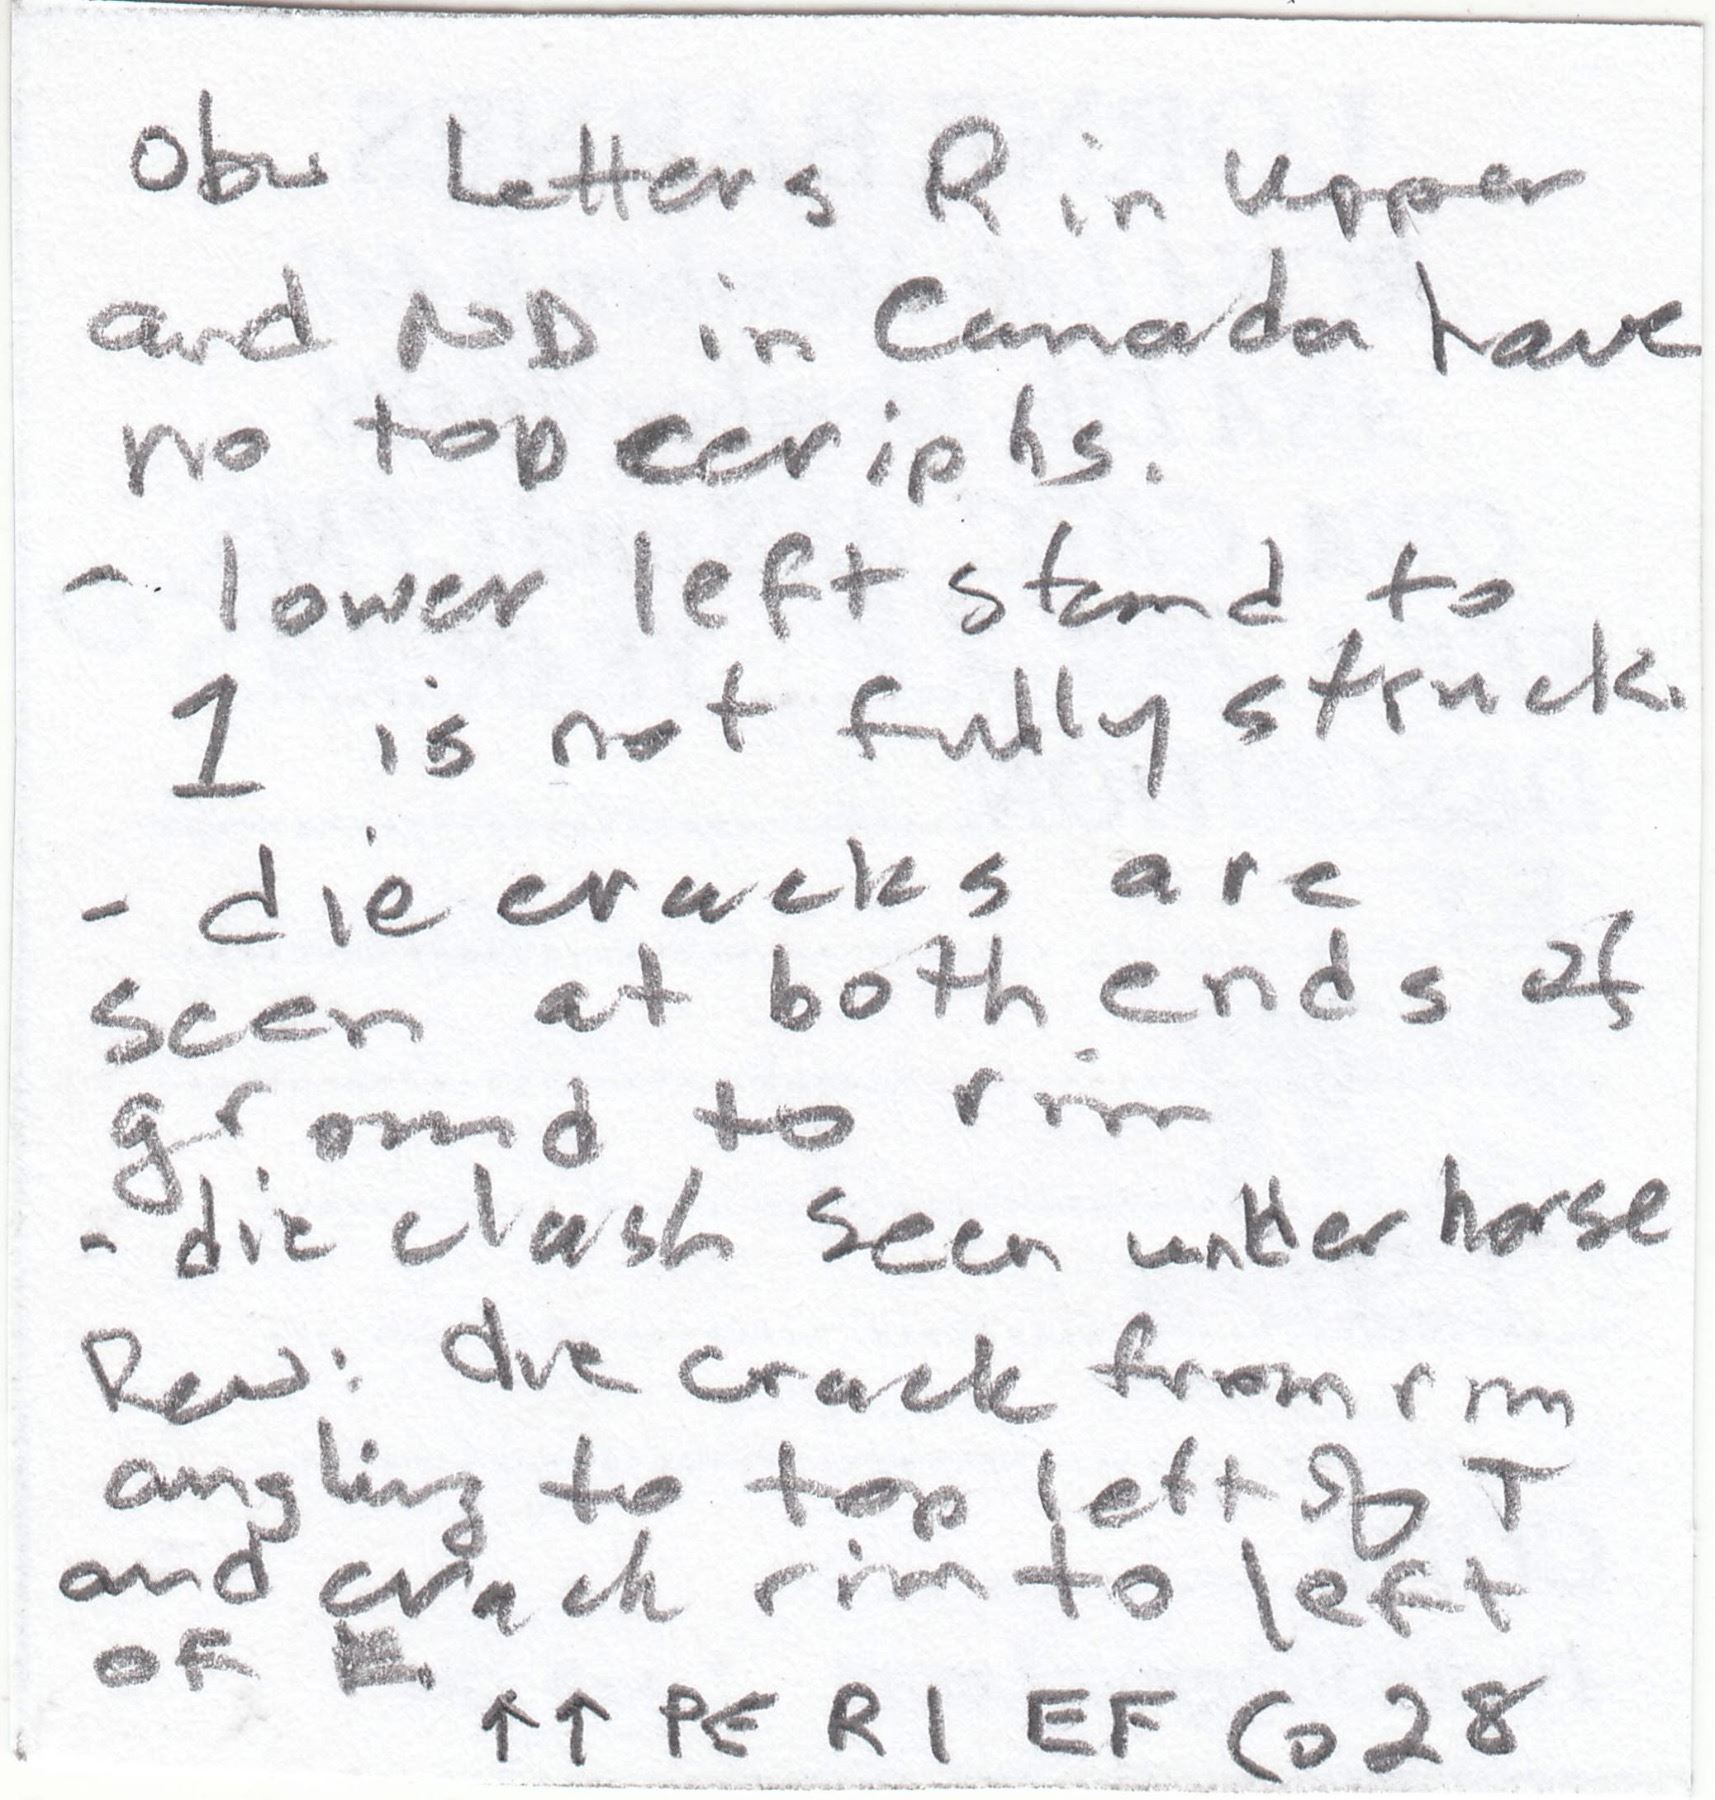 Obv Letters R in Upper
and ND in Canada have
no top ceriphs.
- lower left stand to
1 is not fully struck.
- die cracks are
seen at both ends of
ground to rim
- die clash seen under horse
Rev: die crack from rim
angling to top left of T
and crack rim to left
of E.
↑↑ PE R I EF Co 28